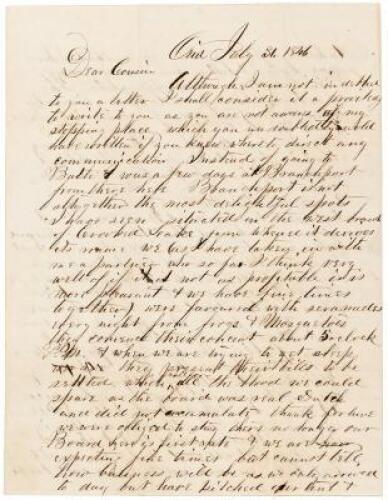 Ovid July 31. 1846
Dear Cousin
Although I am not in debted
to you a letter I shall consider it a privilege
to write to you as you are not aware of my
stopping place which you undoubtedly would
have written if you knew where to direct any
communication Instead of going to
Bath I was a few days at Branchport
from there here Branchport is not
altogether the most delightful spots
I have seen situated in the west branch
of Crooked Lake from whence it derives
its name we as I have taken in with
me a partner who so far I think very
well of if it is not as profitable it is
more pleasant & we have fine times
together we were favoured with serenades
every night from frogs & Mosquetoes
they comence their concert about 5 oclock
P.M. & when we are trying to get sleep
they present their bills to be
settled which all the blood we could
spare as the board was real Dutch
and did not accumulate think fortune
we were obliged to stay there no longer our
Board here is first rate & we are now
expecting fine times but cannot tell
how business will be as we only arrived
to day but have pitched our tent &